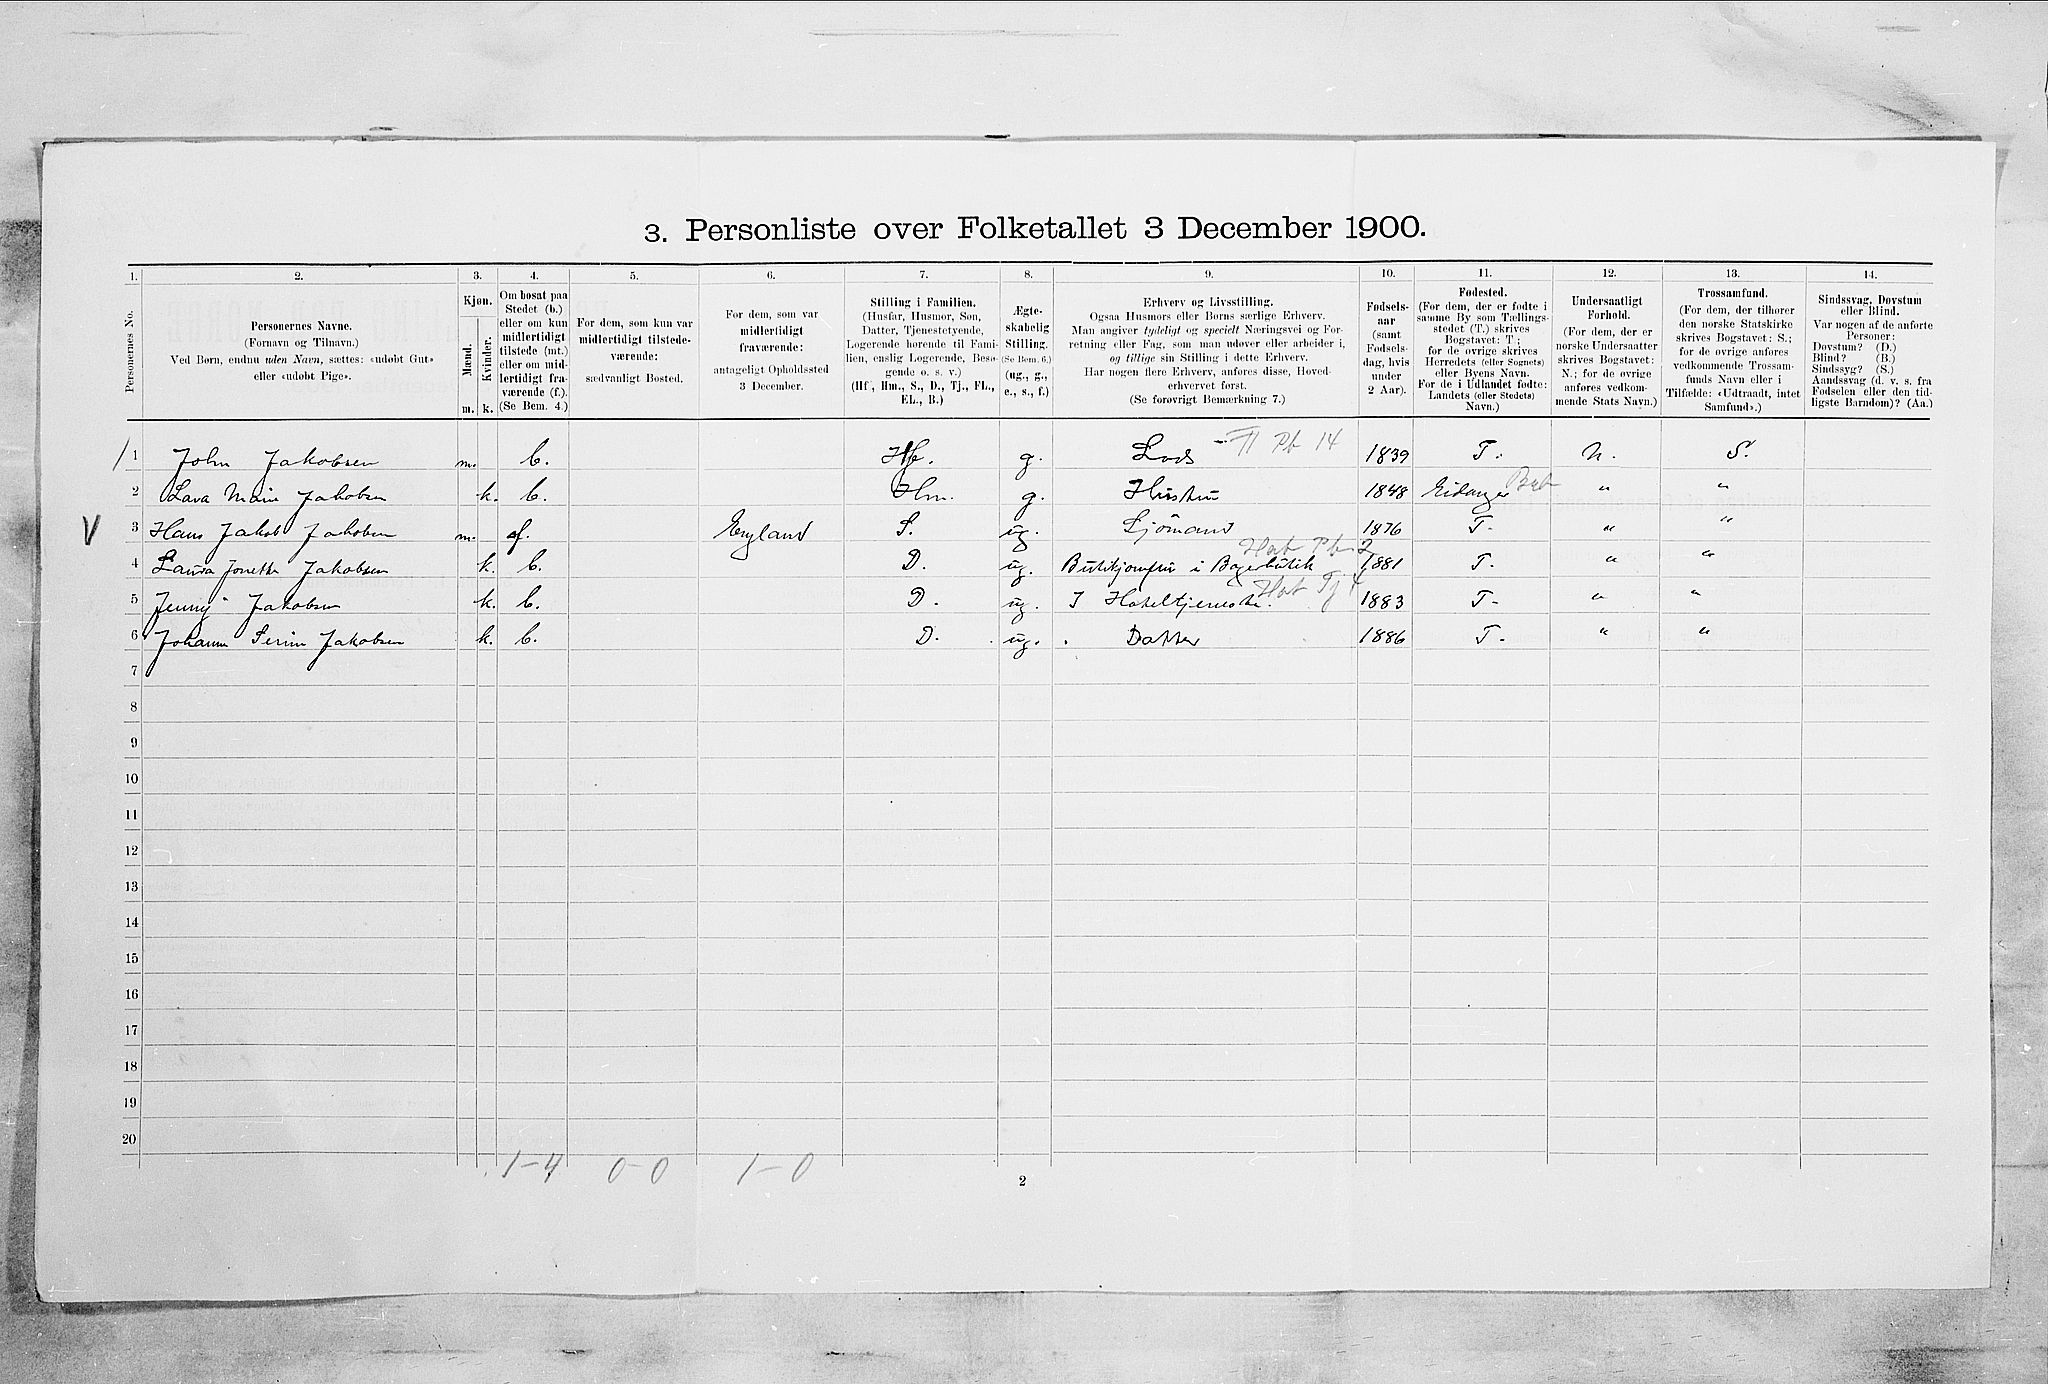 3. Personliste over Folketallet 3 December 1900.
1. 2. 3. 4. 5. 6. 7. 8. 9. 10. 11. 12. 13. 14.
Personernes No.
Personernes Navne.
(Fornavn og Tilnavn.)
Ved Børn, endnu uden Navn, sættes: «udøbt Gut»
eller «udøbt Pige».
Kjøn.
Mænd.
Kvinder.
m. k.
Om bosat paa
Stedet (b.)
eller om kun
midlertidigt
tilstede (mt.)
eller om mid-
lertidigt fra-
værende (f.).
(Se Bem. 4.)
For dem, som kun var
midlertidigt tilstede-
værende:
sædvanligt Bosted.
For dem, som var
midlertidigt
fraværende:
antageligt Opholdssted
3 December.
Stilling i Familien.
(Husfar, Husmor, Søn,
Datter, Tjenestetyende,
Logerende hørende til Fami-
lien, enslig Logerende, Besø-
gende o. s. v.)
(Hf, Hm., S., D., Tj., FL.,
EL., B.)
Ægte-
skabelig
Stilling.
(Se Bem. 6.)
(ug., g.,
e., s., f.)
Erhverv og Livsstilling.
Ogsaa Husmors eller Børns særlige Erhverv.
Man angiver tydeligt og specielt Næringsvei og For-
retning eller Fag, som man udøver eller arbeider i,
og tillige sin Stilling i dette Erhverv.
Har nogen flere Erhverv, anføres disse, Hoved-
erhvervet først.
(Se forøvrigt Bemærkning 7.)
Fødsels-
aar
(samt
Fødsels-
dag, hvis
under
2 Aar).
Fødested.
(For dem, der er fødte i
samme By som Tællings-
stedet (T.) skrives
Bogstavet: T.;
for de øvrige skrives
Herredets (eller Sognets)
eller Byens Navn.
For de i Udlandet fødte:
Landets (eller Stedets)
Navn.)
Undersaatligt
Forhold.
(For dem, der er
norske Undersaatter
skrives Bogstavet:
N.; for de øvrige
anføres vedkom-
mende Stats Navn.)
Trossamfund.
(For dem, der tilhører
den norske Statskirke
skrives Bogstavet: S.;
for de øvrige anføres
vedkommende Trossam-
funds Navn eller i
Tilfælde: «Udtraadt, intet
Samfund».)
Sindssvag, Døvstum
eller Blind.
Var nogen af de anførte
Personer:
Døvstum? (D.)
Blind? (B.)
Sindssyg? (S.)
Aandssvag (d. v. s. fra
Fødselen eller den tid-
ligste Barndom)? (Aa.)
1 John Jakobsen m. b. Hf. g. Lods Pb 14 1839 T. N. S.
2 Lava Marie Jakobsen k. b. Hm. g. Hustru 1848 Eidanger " "
V 3 Hans Jakob Jakobsen m. f. England S. ug. Sjömand 1876 T. " "
4 Laura Jonette Jakobsen k. b. D. ug. Butikjomfru i Bagerbutik 1881 T. " "
5 Jenny Jakobsen k. b. D. ug. I Hoteltjeneste. Hot Tj 1883 T. " "
6 Johanne Serine Jakobsen k. b. D. ug. Datter 1886 T. " "
7
8
9
10
11
12
13
14
15
16
17
18
19
20
1-4 0-0 1-0
2